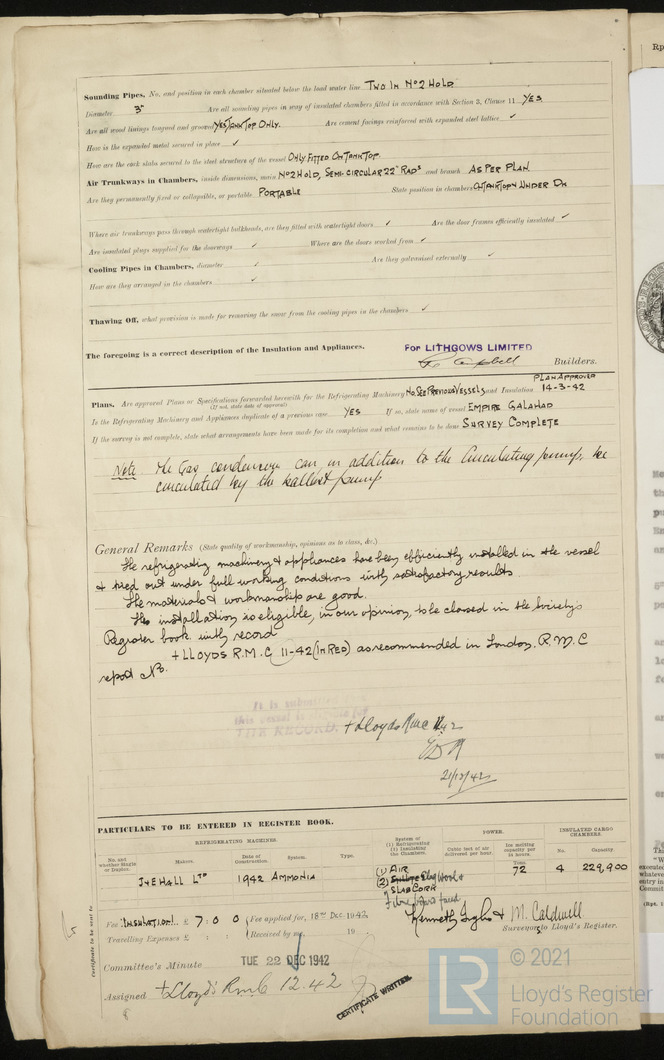 Sounding Pipes, No. and position in each chamber situated below the load water line TWO IN No 2 HOLD
Diameter 3" Are all sounding pipes in way of insulated chambers fitted in accordance with Section 3, Clause 11 YES
Are all wood linings tongued and grooved YES TANK TOP ONLY. Are cement facings reinforced with expanded steel lattice ✓
How is the expanded metal secured in place ✓
How are the cork slabs secured to the steel structure of the vessel ONLY FITTED ON TANK TOP.
Air Trunkways in Chambers, inside dimensions, main No 2 HOLD, SEMI-CIRCULAR 22" RADS and branch AS PER PLAN
Are they permanently fixed or collapsible, or portable PORTABLE State position in chambers ON TANK TOP & UNDER DK
Where air trunkways pass through watertight bulkheads, are they fitted with watertight doors ✓ Are the door frames efficiently insulated ✓
Are insulated plugs supplied for the doorways ✓ Where are the doors worked from ✓
Cooling Pipes in Chambers, diameter ✓ Are they galvanised externally ✓
How are they arranged in the chambers ✓
Thawing Off, what provision is made for removing the snow from the cooling pipes in the chambers ✓
The foregoing is a correct description of the Insulation and Appliances.
For LITHGOWS LIMITED
Campbell Builders.
PLAN APPROVED
Plans. Are approved Plans or Specifications forwarded herewith for the Refrigerating Machinery No. SEE PREVIOUS VESSELS and Insulation 14-3-42
(If not, state date of approval)
Is the Refrigerating Machinery and Appliances duplicate of a previous case YES If so, state name of vessel EMPIRE GALAHAD
If the survey is not complete, state what arrangements have been made for its completion and what remains to be done SURVEY COMPLETE
Note. The Gas condensers can in addition to the circulating pump, be
circulated by the ballast pump
General Remarks (State quality of workmanship, opinions as to class, &c.)
The refrigerating machinery & appliances have been efficiently installed in the vessel
& tried out under full working conditions with satisfactory results.
The materials & workmanship are good.
The installation is eligible, in our opinion, to be classed in the Society's
Register book with record
+ LLOYDS R.M.C 11-42 (IN RED) as recommended in London. R.M.C
report No.
It is submitted that
this vessel is eligible for
THE RECORD.
+ Lloyds RMC 12.42
21/12/42
PARTICULARS TO BE ENTERED IN REGISTER BOOK.
REFRIGERATING MACHINES.
System of (1) Refrigerating (2) Insulating the Chambers.
POWER.
INSULATED CARGO CHAMBERS.
No. and whether Single or Duplex. Makers. Date of Construction. System. Type. Cubic feet of air delivered per hour. Ice melting capacity per 24 hours. No. Capacity.
Tons.
J & E HALL LTD 1942 AMMONIA (1) AIR 72 4 229,900
(2) Slag Wool &
SLAB CORK
Fee INSULATION £ 7 : 0 : 0 Fee applied for, 18th Dec. 1942
Travelling Expenses £ : : Received by me, 19
M. Caldwell.
Surveyors to Lloyd's Register.
Certificate to be sent to
Committee's Minute TUE 22 DEC 1942
Assigned + Lloyd's RMC 12.42
CERTIFICATE WRITTEN.
© 2021
LR
Lloyd's Register
Foundation